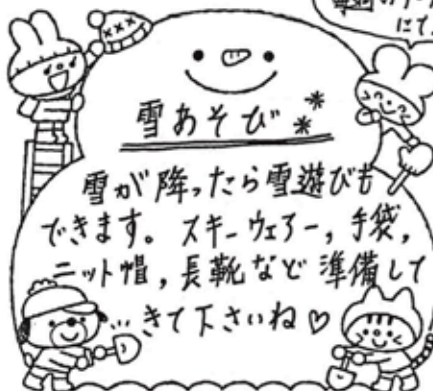 にて
雪あそび
雪が降ったら雪遊びも
できます。スキーウェアー, 手袋,
ニット帽, 長靴など準備して
きて下さいね♡